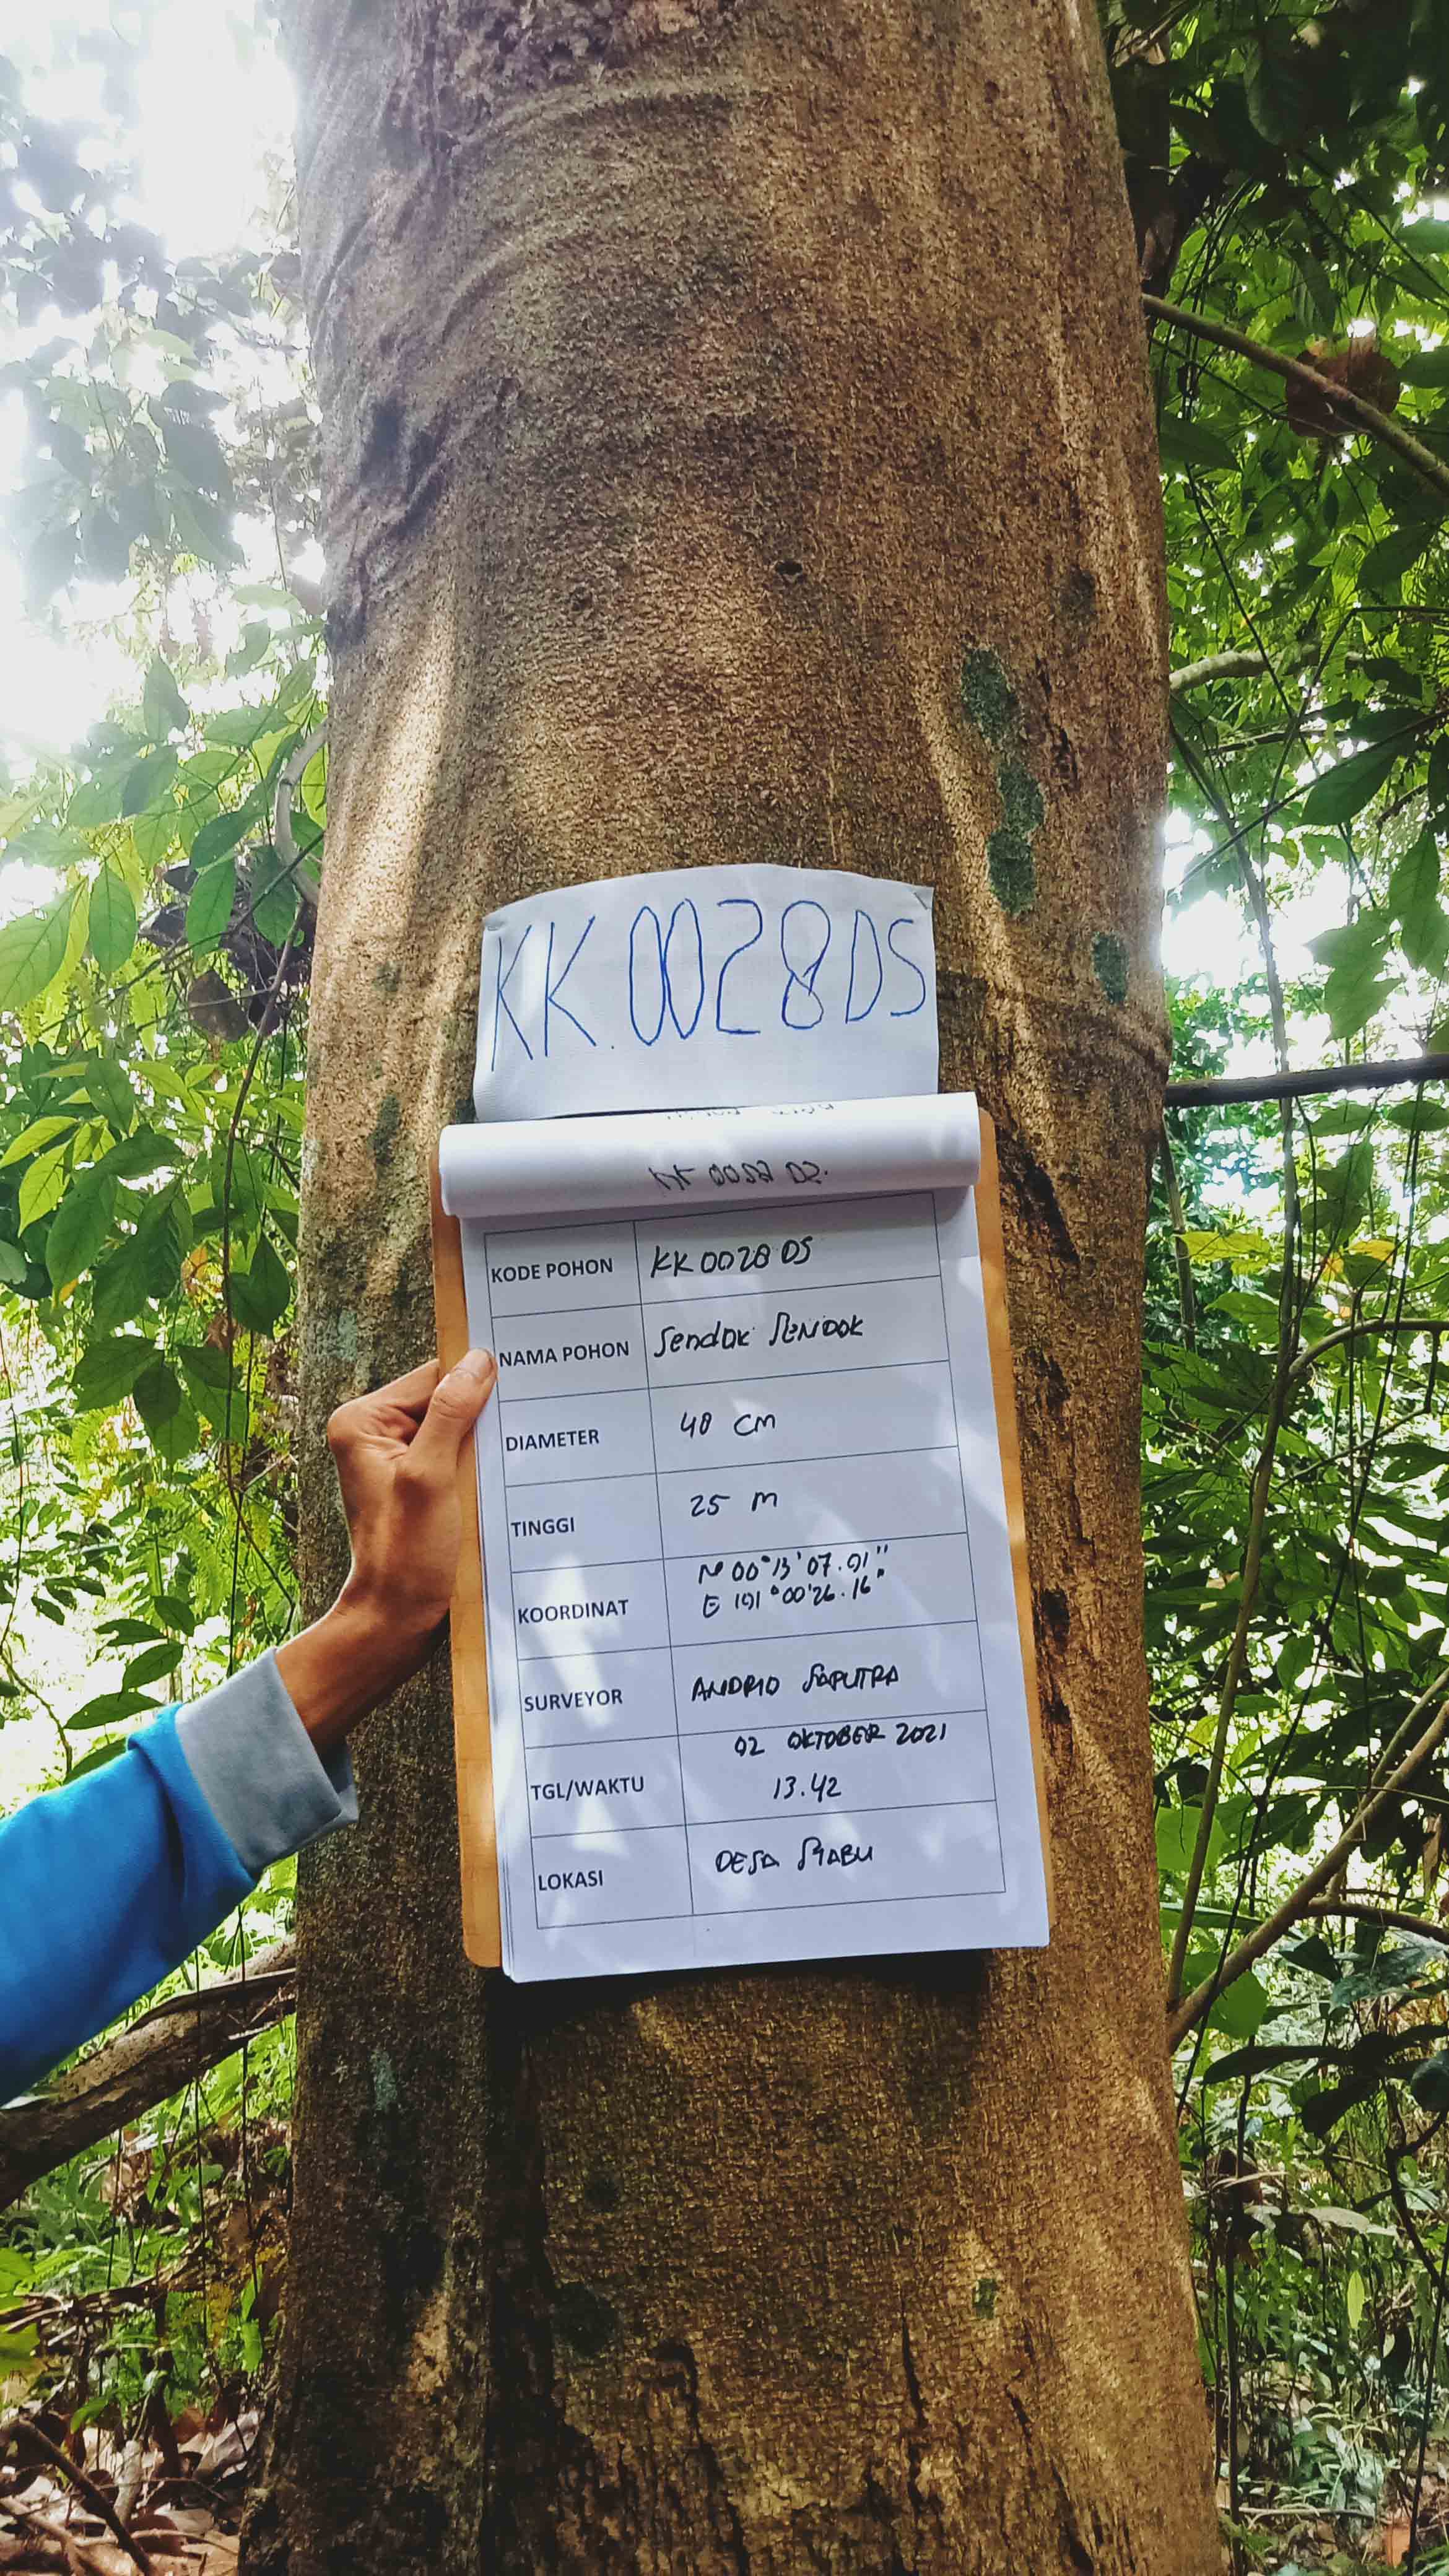 KK.0028DS
KODE POHON KK 0028 DS
NAMA POHON Sendok SENDOK
DIAMETER 48 cm
TINGGI 25 m
KOORDINAT N 00°13'07.91"
E 101°00'26.16"
SURVEYOR ANDRIO SAPUTRA
TGL/WAKTU 02 OKTOBER 2021
13.42
LOKASI DESA SIABU